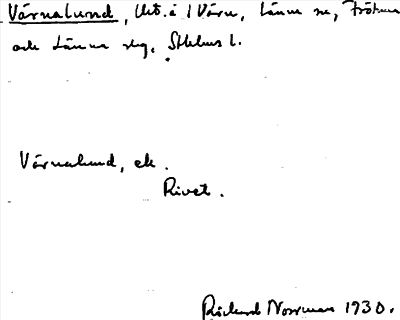 Värnalund, Utt. å 1 Värn, Länna sn, Frötuna
och Länna skg, Sthlms l.
Värnalund, ek.
Rivet.
Rickard Norrman 1930.